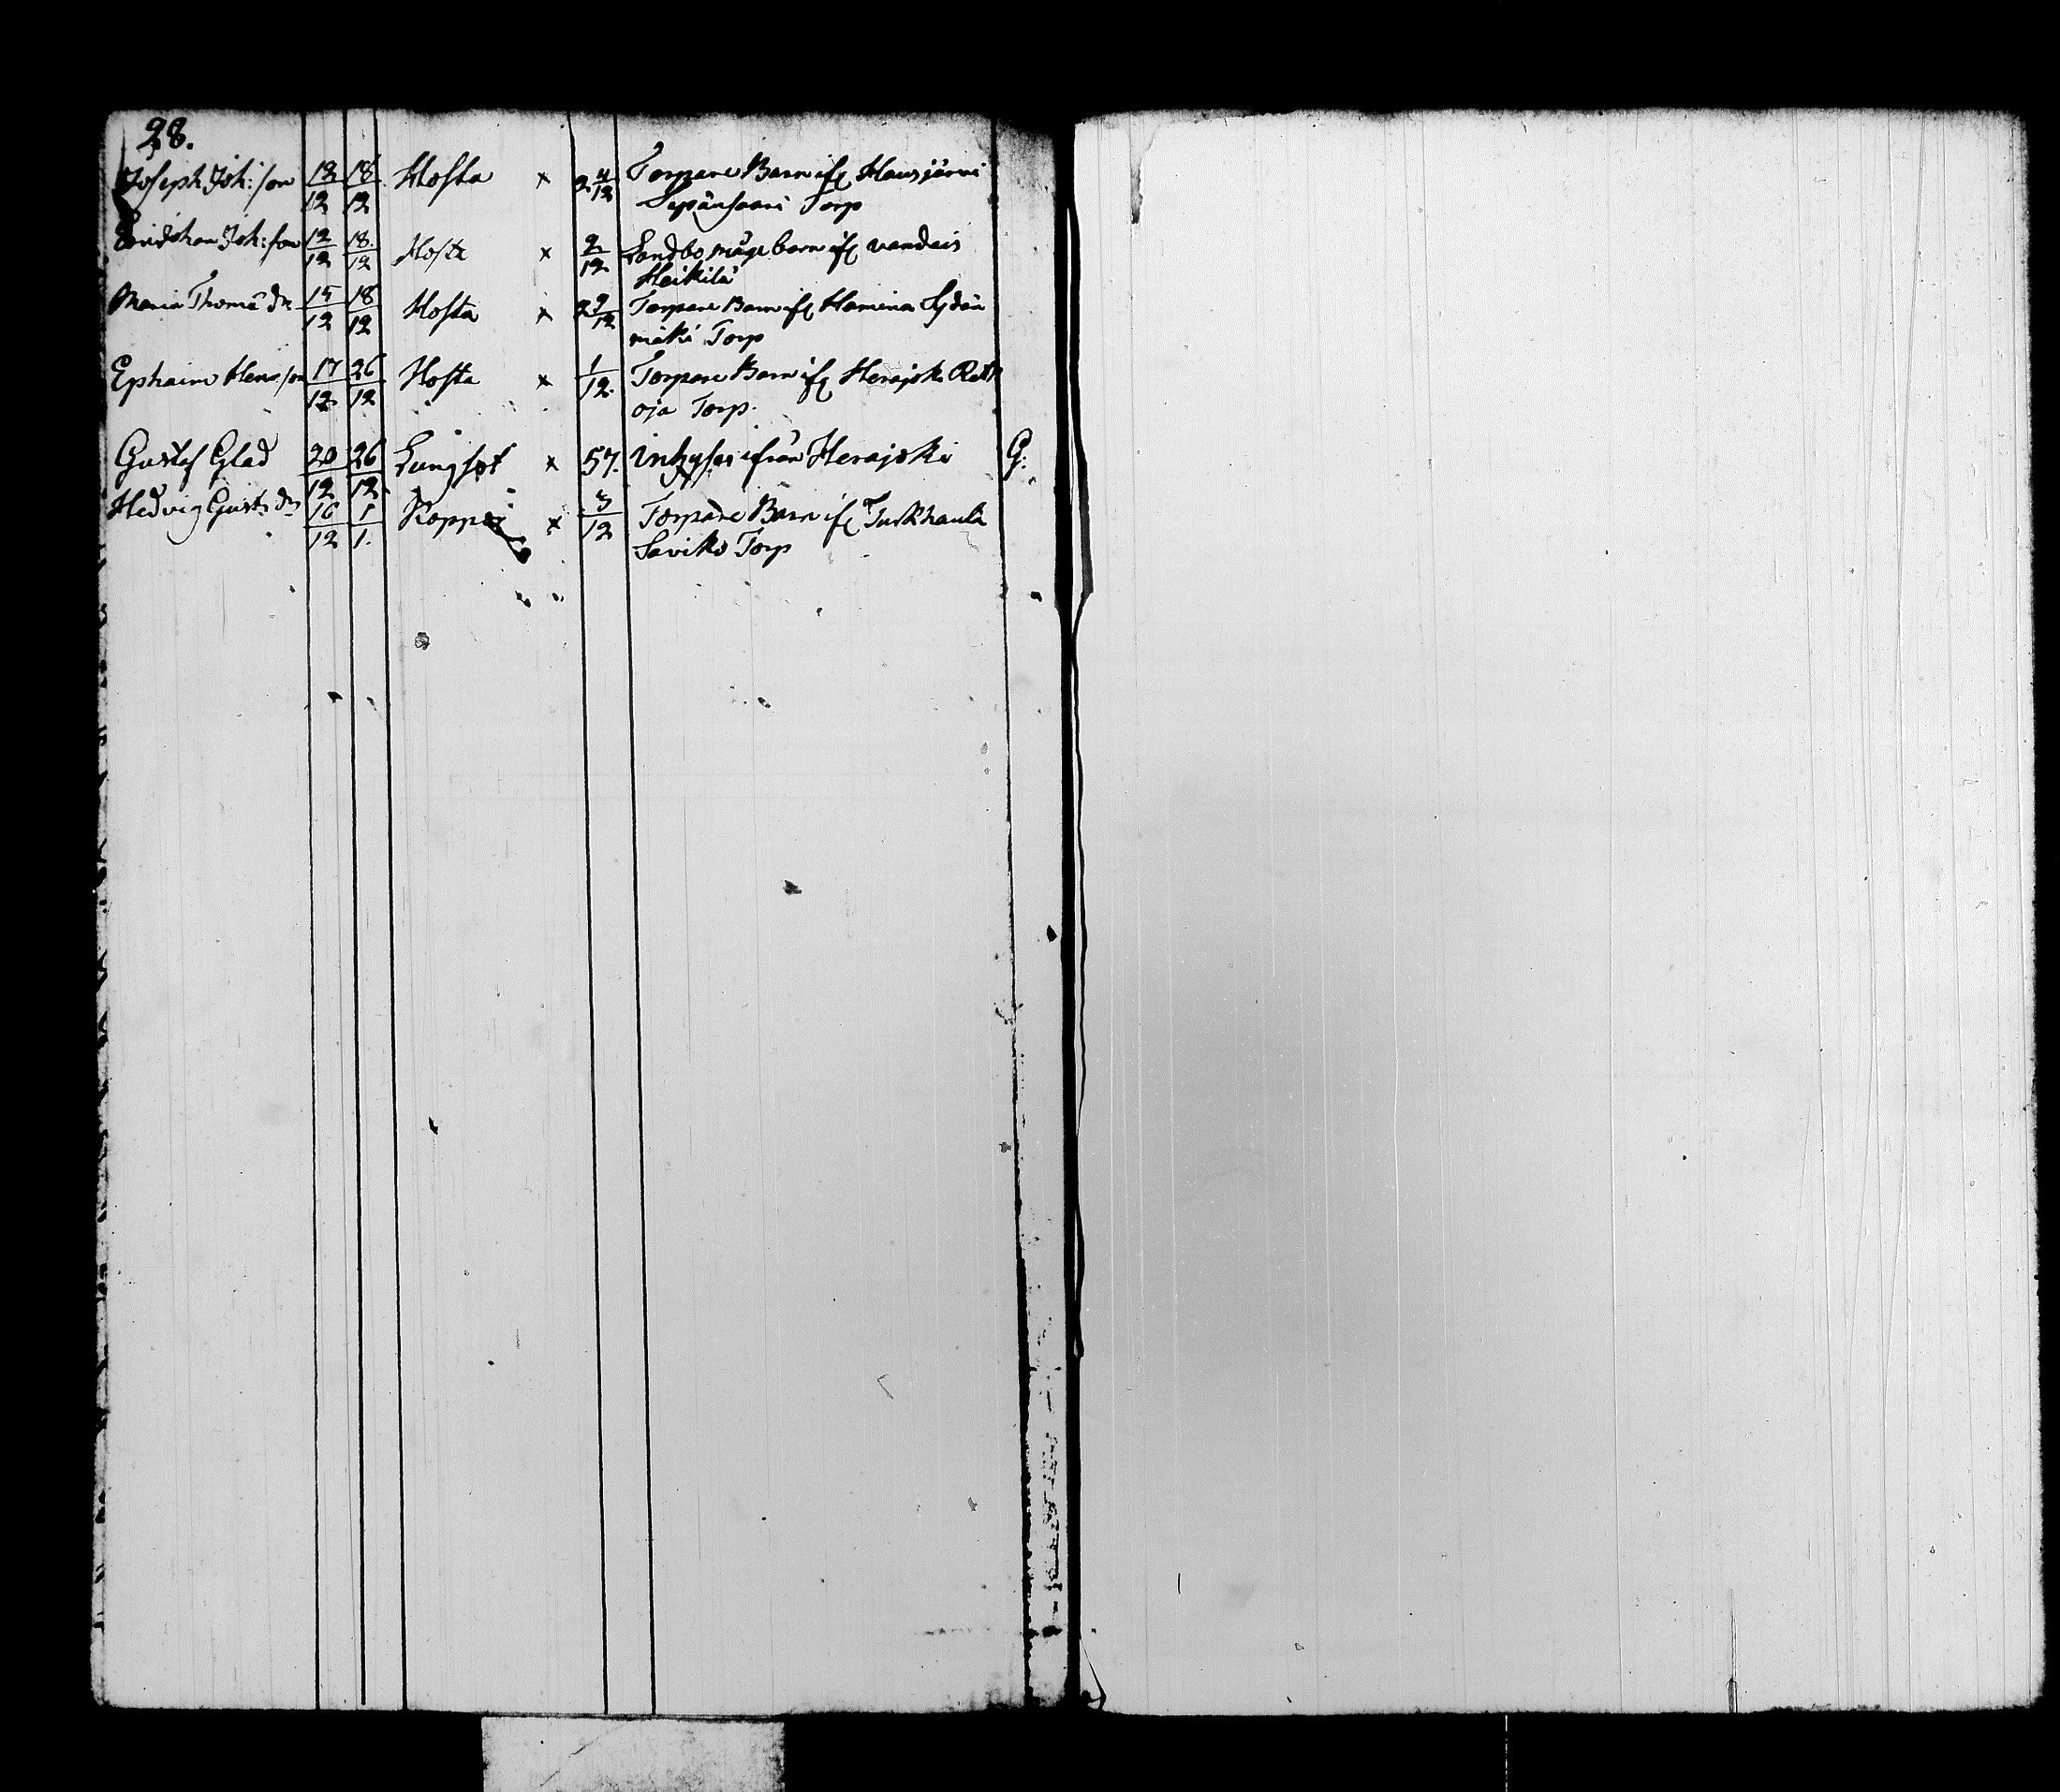 28.
Joseph Joh: son 18/12 18/12 Hosta x 2 4/12 Torpare Barn if: Hausjärvi
Sepänsaari Torp
Joh: son 12/12 18/12 Hosta x 2/12 Landbo barn if:
Heikilä
Maria Thomæ dr 15/12 18/12 Hosta x 2 9/12 Torpare Barn if: Hamina Sydän
mäki Torp
Ephaim Henr: son 17/12 26/12 Hosta x 1/12. Torpare Barn if: Herajoki
oja Torp.
Gustaf Glad 20/12 26/12 Lungsot x 57. inhyses ifrån Herajoki G:
Hedvig Gust: dr 16/12 1/1. Koppor x 3/12 Torpare Barn if: Turkhauta
Saviko Torp